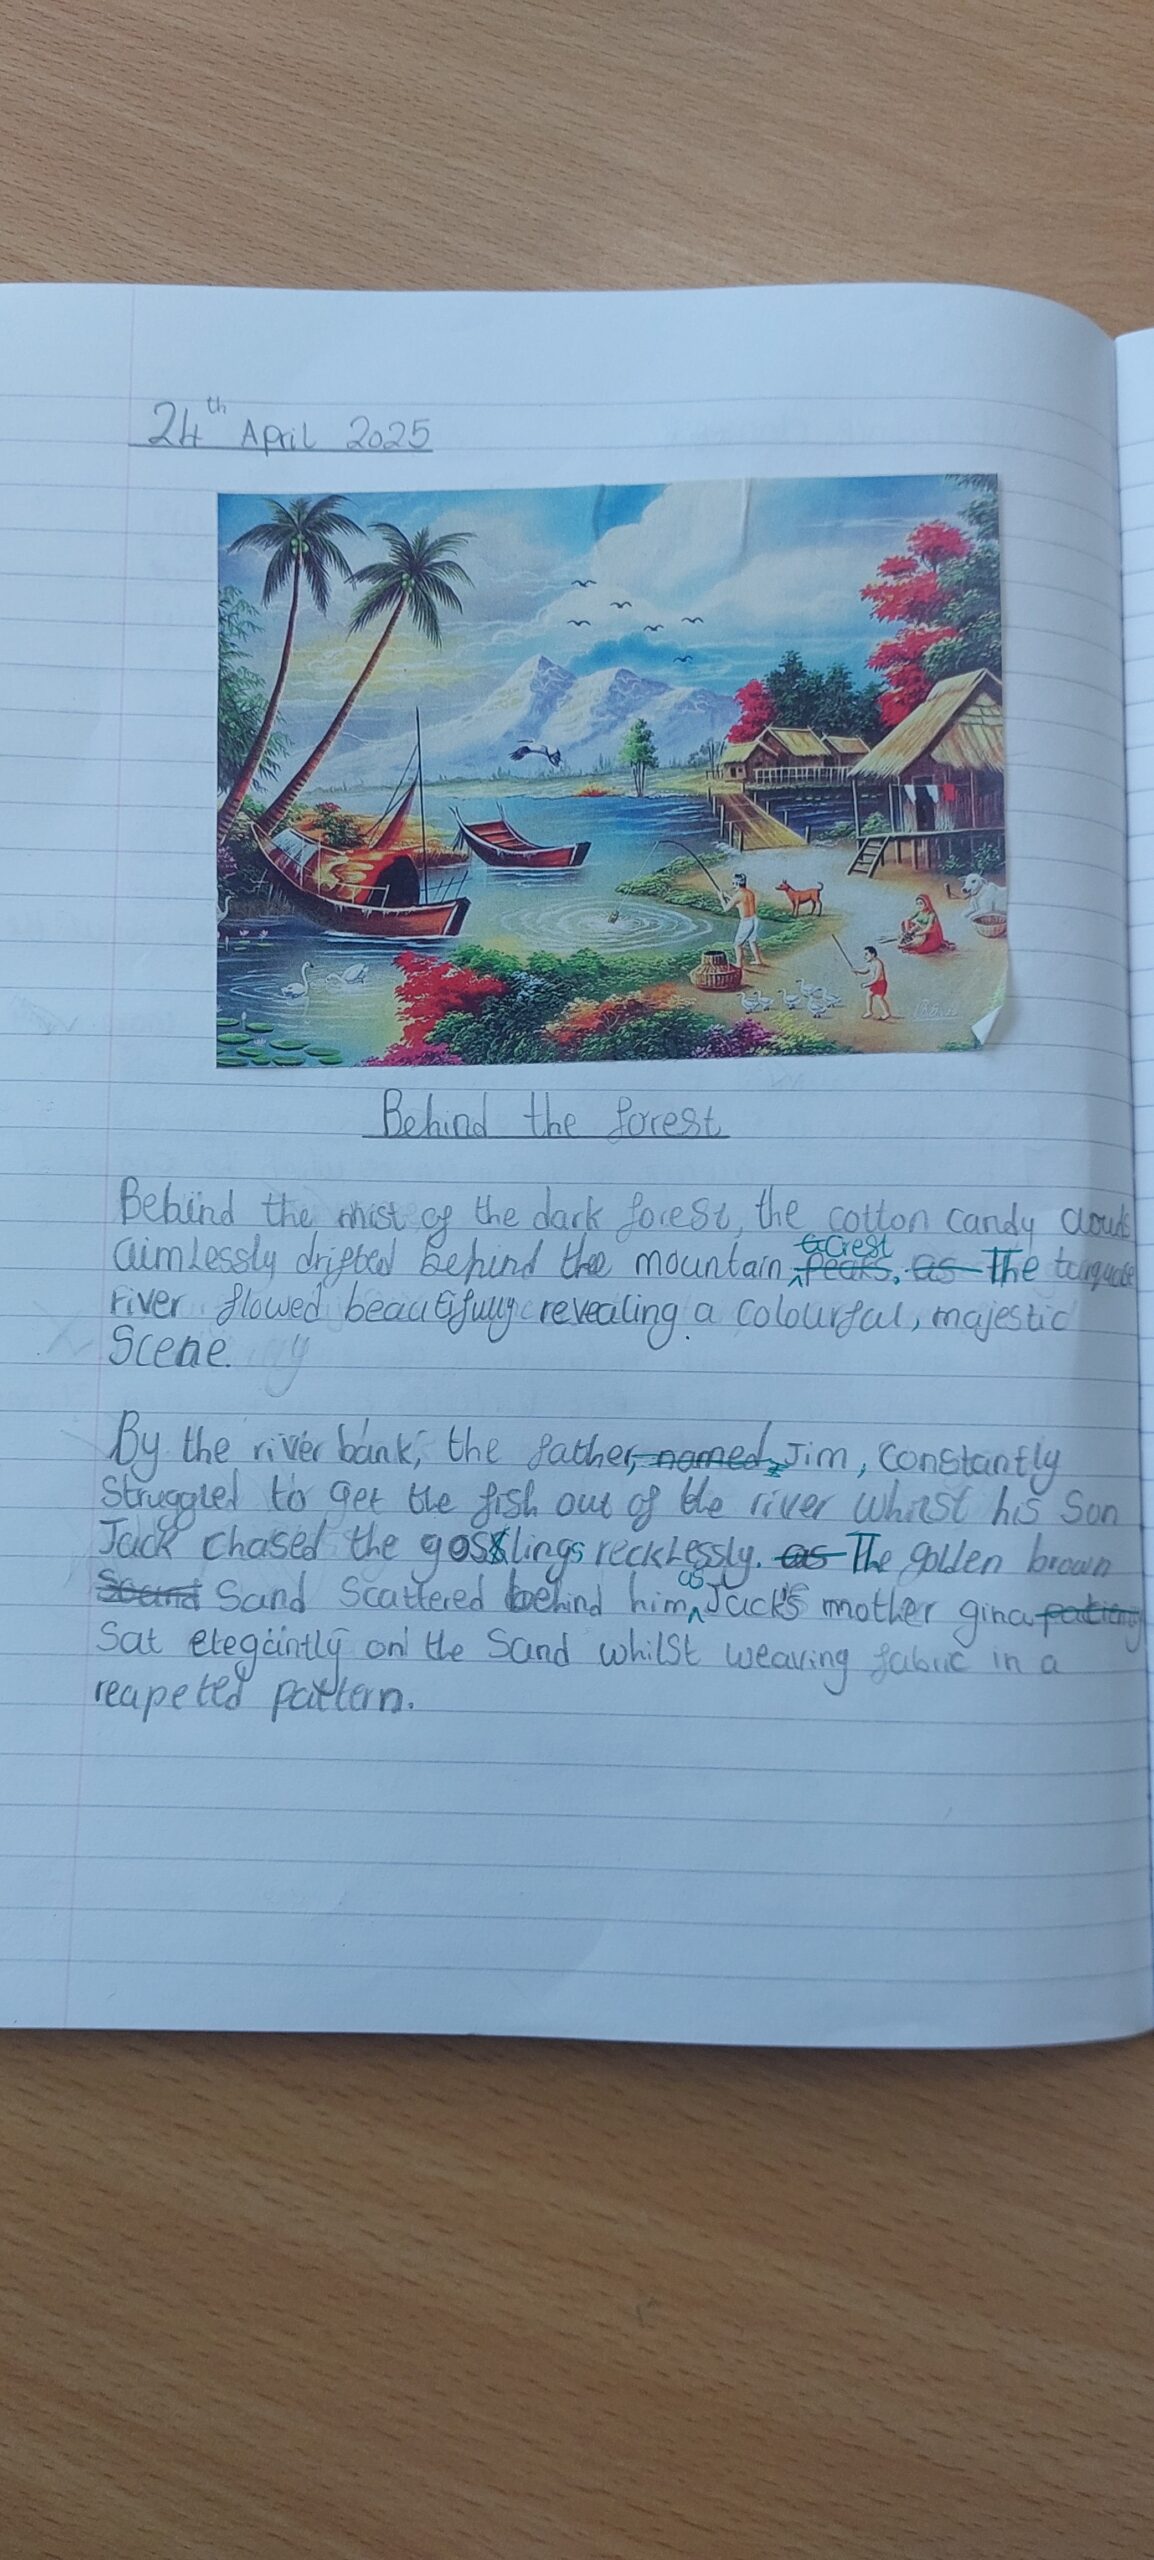 24th April 2025
Behind the forest
Behind the mist of the dark forest, the cotton candy clouds
aimlessly drifted behind the mountain crest peaks. as The turquoise
river flowed beautifully revealing a colourful, majestic
scene.
By the river bank, the father, named, Jim, constantly
struggled to get the fish out of the river whilst his son
Jack chased the goslings recklessly. as The golden brown
sound sand scattered behind him as Jack's mother gina
sat elegantly on the sand whilst weaving fabric in a
reapeted pattern.